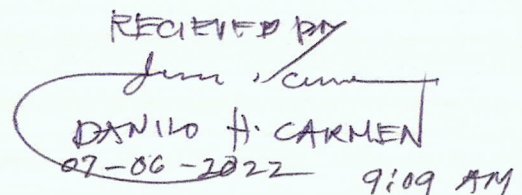 RECIEVED BY
DANILO H. CARMEN
07-06-2022
9:09 AM